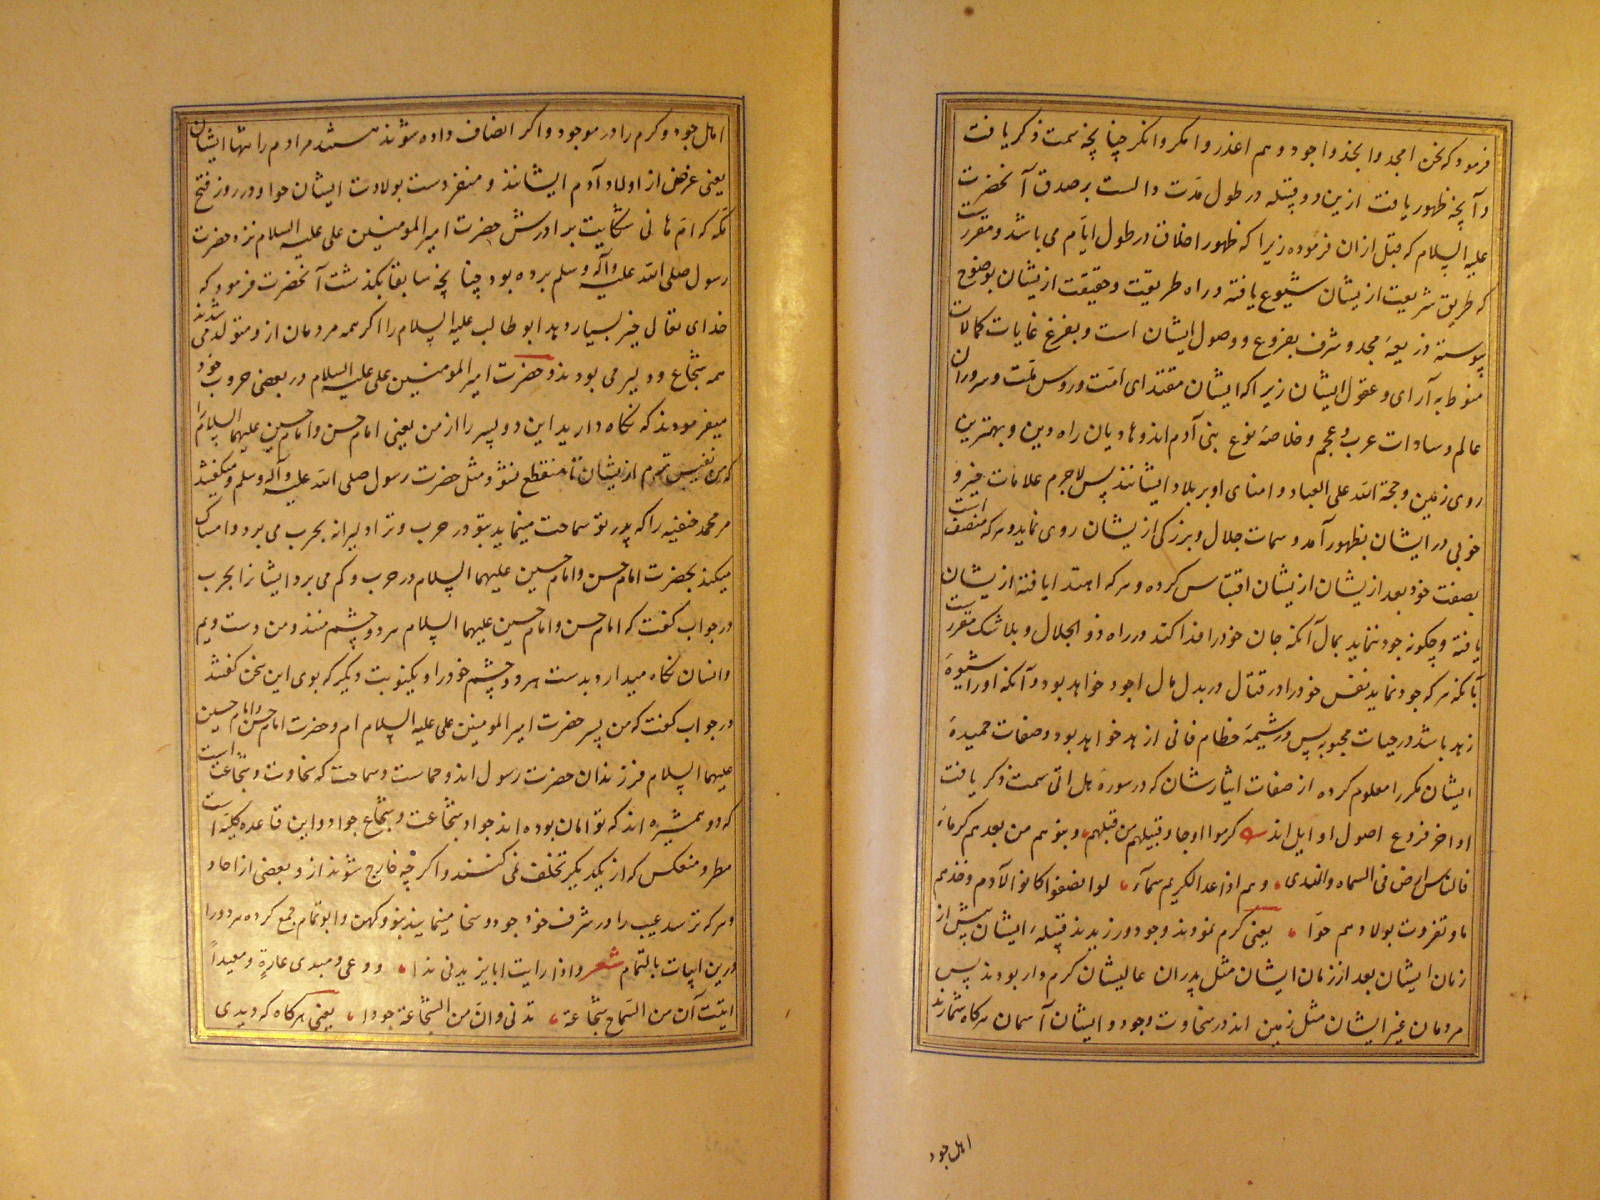 فرمود که نحن امجد وانجد واجود وهم اغدر وامکر وانکر چنانچه سمت ذکر یافت
وآنچه ظهور یافت ازین دو قبیله در طول مدت دالست بر صدق آنحضرت
علیه السلام که قبل ازان فرموده زیرا که ظهور اخلاق در طول ایام می باشد ومقررست
که طریق شریعت ازیشان شیوع یافته وراه طریقت وحقیقت ازیشان بوضوح
پیوسته ذریعهٔ مجد وشرف بفروع ووصول ایشان است وبفرغ غایات کمالات
منوط به آرای وعقول ایشان زیرا که ایشان مقتدای امت وروس ملت وسروران
عالم وسادات عرب وعجم وخلاصهٔ نوع بنی آدم اند وهادیان راه دین وبهترین
روی زمین وحجة الله علی العباد وامنای او بر بلاد ایشانند پس لاجرم علامات خیر و
خوبی در ایشان بظهور آمد وسمات جلال وبزرگی ازیشان روی نماید وهر که منصف است
بصفت خود بعد ازیشان ازیشان اقتباس کرده وهر که اهتدا یافته ازیشان
یافته وچگونه جود ننماید بمال آنکه جان خود را فدا کند در راه ذو الجلال وبلا شک مقررست
بآنکه هر که جود نماید نفس خود را در قتال در بذل مال اجود خواهد بود وآنکه او را شیوهٔ
زهد باشد در حیات محبوبه پس در شیمهٔ حطام فانی ازهد خواهد بود وصفات حمیدهٔ
ایشان مکرر معلوم کرده از صفات ایثارشان که در سورهٔ هل اتی سمت ذکر یافت
اواخر فروع اصول اوایل اند کرموا وجاد قبیلهم من قبلهم وبنوهم من بعدهم کرماء
فالناس ارض فی السماه والندی وهم اذا عد الکریم سماء لو انصفوا کانوا لآدم وحدهم
وتفردت بولادهم حوّا یعنی کرم نمودند وجود ورزیدند قبیلهٔ ایشان پیش از
زمان ایشان بعد از زمان ایشان مثل پدران عالیشان کرم دار بودند پس
مردمان غیر ایشان مثل زمین اند در سخاوت وجود وایشان آسمان هرکاه شمارند
اهل جود
اهل جود وکرم را در موجود واکر انصاف داده شوند هستند مر ادم را تنها ایشان
یعنی غرض از اولاد آدم ایشانند ومنفردست بولادت ایشان حوا ودر روز فتح
مکه که ام هانی شکایت برادرش حضرت امیر المومنین علی علیه السلام نزد حضرت
رسول صلی الله علیه وآله وسلم برده بود چنانچه سابقا بکذشت آنحضرت فرمود که
خدای تعالی خیر بسیار دهد ابو طالب علیه السلام را اکر همه مردمان ازو متولد می شدند
همه شجاع ودلیر می بودند وحضرت امیر المومنین علی علیه السلام در بعضی حروب خود
میفرمودند که نکاه دارید این دو پسر را از من یعنی امام حسن وامام حسین علیهما السلام را
که من نفیس ترم ازیشان تا منقطع نشود مثل حضرت رسول صلی الله علیه وآله وسلم ومیکفتند
مر محمد حنفیه را که پدر تو سماحت مینماید بتو در حرب وترا دلیرانه بحرب می برد وامساک
میکند بحضرت امام حسن وامام حسین علیهما السلام در حرب وکم می برد ایشانرا بحرب
در جواب کفت که امام حسن وامام حسین علیهما السلام هر دو چشم منند ومن دست ویم
وانسان نکاه میدارد بدست هر دو چشم خود را ویکنوبت دیکر که بوی این سخن کفتند
در جواب کفت که من پسر حضرت امیر المومنین علی علیه السلام ام وحضرت امام حسن وامام حسین
علیهما السلام فرزندان حضرت رسول اند وحماست وسماحت که سخاوت وشجاعت است
که دو همشیره اند که توامان بوده اند جواد شجاعت وشجاع جواد واین قاعده کلیه است
مطرد ومنعکس که از یکدیکر تخلف نمی کنند واکر چه خارج شوند ازو بعضی از احاد
وهر که ترسد عیب را در شرف خود جود وسخا مینماید وابو تمام جمع کرده هر دو را
درین ابیات بالتمام شعر واذا رایت ابا یزید فی ندا ووغی ومبدی غارة ومعیداً
ایقنت ان من السماح شجاعة تدنی وان من الشجاعة جودا یعنی هرکاه که دیدی